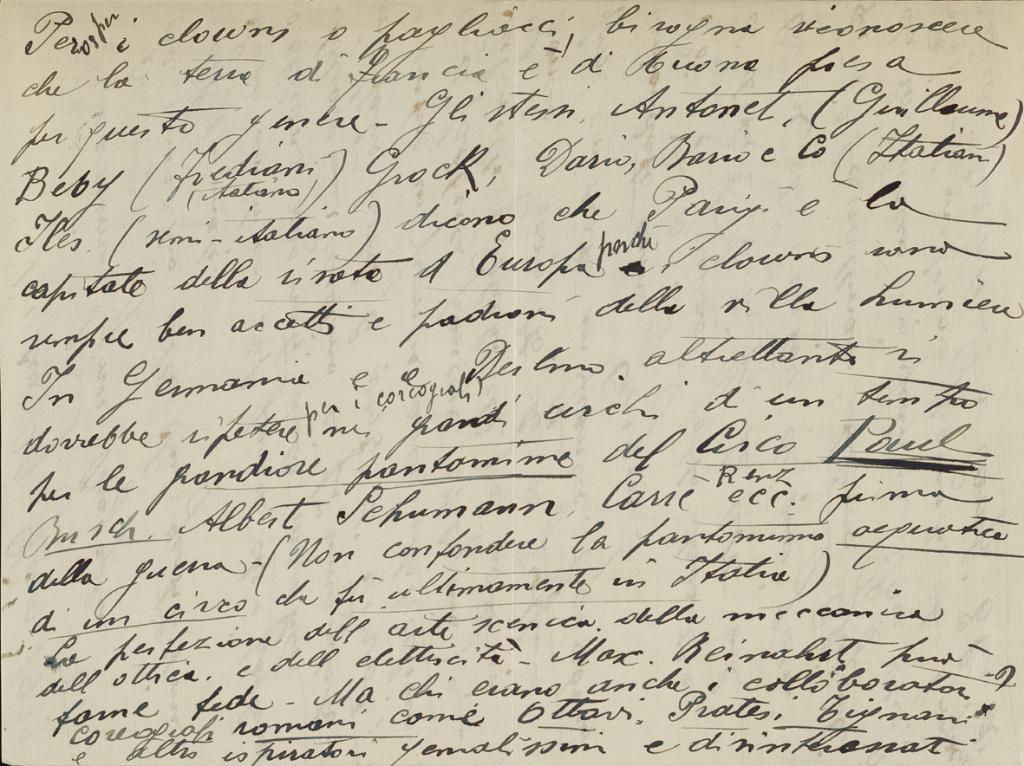 Però per i clowns o pagliacci, bisogna riconoscere
che la terra di Francia è di buona presa
per questo genere - Gli stessi Antonet, (Guillaume)
Beby (Frediani) (italiano) Grock, Dario, Bario e Co (Italiani)
Iles (semi-italiano) dicono che Parigi è la
capitale della risata d'Europa perchè i clowns sono
sempre ben accetti e padroni della ville lumière
In Germania e a Berlino altrettanto si
dovrebbe ripetere per i coreografi nei grandi circhi di un tempo
per le grandiose pantomime del Circo Paul
Busch, Albert Schumann, Carré - Renz ecc. prima
della guerra - (Non confondere la pantomima acquatica
di un circo che fu ultimamente in Italia)
La perfezione dell'arte scenica, della meccanica
dell'ottica, e dell'elettricità - Max. Reinahrt può
farne fede - Ma chi erano anche i collaboratori - ?
coreografi romani come Ottavi, Pratesi,
e altri ispiratori genialissimi e disinteressati